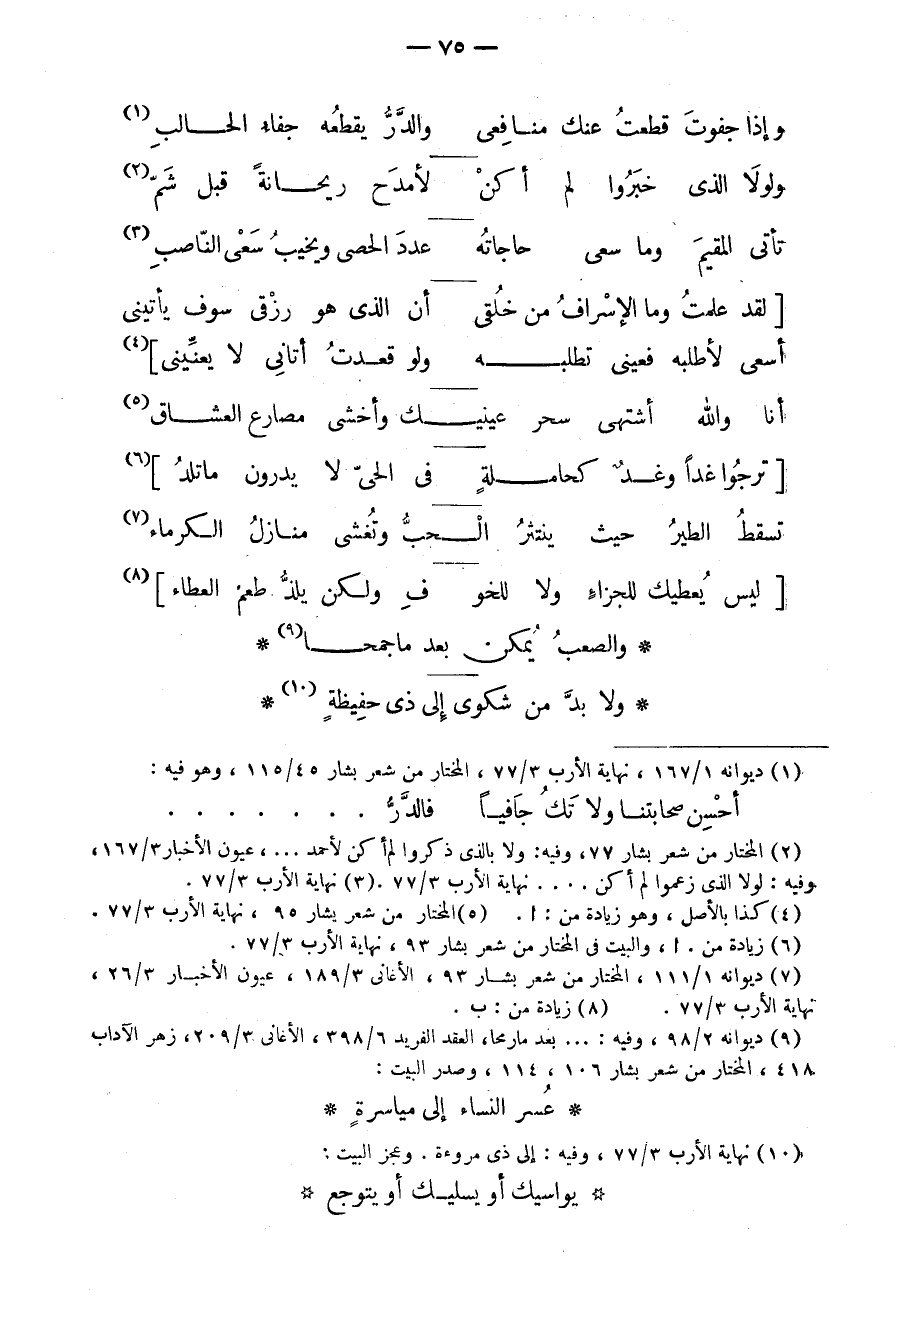 — ٧٥ —
وإذا جفوتَ قطعتُ عنك منـافِعى والدَّرُّ يقطعُه جفاء الحـالبِ (١)
ولولَا الذى خبَرُوا لم أكنْ لأمدَح ريحـانةً قبل شَمّ (٢)
تأتى المقيمَ وما سعى حاجاتُه عددَ الحصى ويخيبُ سَعْى النّاصبِ (٣)
[ لقد علمتُ وما الإسْرافُ من خلُقى أن الذى هو رزْقى سوف يأتينى
أسعى لأطلبه فعينى تطلبـه ولو قعدتُ أتانى لا يعنِّينى ] (٤)
أنا والله أشتهى سحر عينيـك وأخشى مصارع العشـاق (٥)
[ ترجُوا غداً وغـدٌ كحامـلةٍ فى الحىّ لا يدرون ماتلدُ ] (٦)
تسقطُ الطيرُ حيث ينتثرُ الْـحبُّ وتُغشى منـازلُ الـكرماء (٧)
[ ليس يُعطيك للجزاءِ ولا للخو فِ ولـكن يلذُّ طعمَ العطاء ] (٨)
* والصعبُ يُمكن بعد ماجمحـا (٩) *
* ولا بدَّ من شكوى إلى ذى حفِيظةٍ (١٠) *
(١) ديوانه ١٦٧/١ ، نهاية الأرب ٧٧/٣ ، المختار من شعر بشار ١١٥/٤٥ ، وهو فيه :
أحْسِن صحابتنـا ولا تَكُ جَافيـاً فالدَّرُّ . . . . . . . .
(٢) المختار من شعر بشار ٧٧، وفيه: ولا بالذى ذكروا لم أكن لأحمد ... ، عيون الأخبار ١٦٧/٣ ،
وفيه : لولا الذى زعموا لم أكن .... نهاية الأرب ٧٧/٣ .(٣) نهاية الأرب ٧٧/٣ .
(٤) كذا بالأصل ، وهو زيادة من : ا . (٥) المختار من شعر بشار ٩٥ ، نهاية الأرب ٧٧/٣ .
(٦) زيادة من . ا ، والبيت فى المختار من شعر بشار ٩٣ ، نهاية الأرب ٧٧/٣ .
(٧) ديوانه ١١١/١ ، المختار من شعر بشـار ٩٣ ، الأغانى ١٨٩/٣ ، عيون الأخبـار ٢٦/٣ ،
نهاية الأرب ٧٧/٣ . (٨) زيادة من : ب .
(٩) ديوانه ٩٨/٢ ، وفيه : ... بعد مارمحا، العقد الفريد ٣٩٨/٦ ، الأغانى ٢٠٩/٣ ، زهر الآداب
٤١٨ ، المختار من شعر بشار ١٠٦ ، ١١٤ ، وصدر البيت :
* عُسر النساء إلى مياسرةٍ *
(١٠) نهاية الأرب ٧٧/٣ ، وفيه : إلى ذى مروءة . وعجز البيت :
* يواسيك أو يسليـك أو يتوجع *